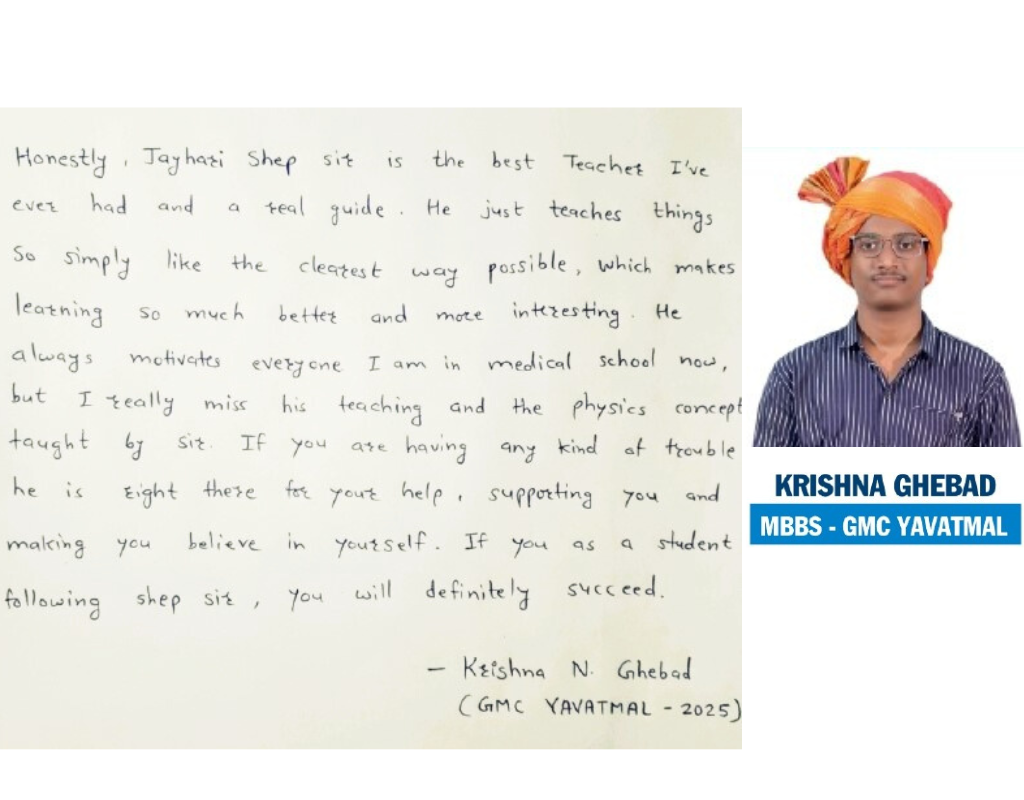 Honestly, Jayhari Shep sir is the best Teacher I've
ever had and a real guide. He just teaches things
So simply like the clearest way possible, which makes
learning so much better and more interesting. He
always motivates everyone I am in medical school now,
but I really miss his teaching and the physics concept
taught by sir. If you are having any kind of trouble
he is right there for your help, supporting you and
making you believe in yourself. If you as a student
following shep sir, you will definitely succeed.
– Krishna N. Ghebad
(GMC YAVATMAL - 2025)
KRISHNA GHEBAD
MBBS - GMC YAVATMAL